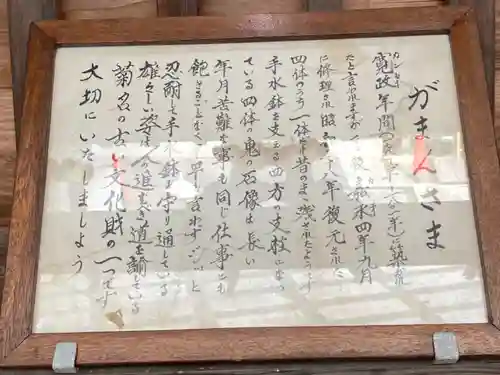 がまんさま
カンセイ
寛政年間(一七八九年~一八〇一年)に築かれ
たと言われますが その後 嘉永四年九月
に修理され 昭和五十八年復元された
四体のうち一体だけ昔のまゝ残されたようです
手水鉢を支える四方の支脚になっ
ている四体の鬼の石像は 長い
年月苦難な事も同じ仕事にも
飽きることもなく 早く言わずジッと
忍耐して手水鉢を守り通している
雄々しい姿は 今尚追いき道を諭している
菊名の古い文化財の一つです
大切にいたしましょう